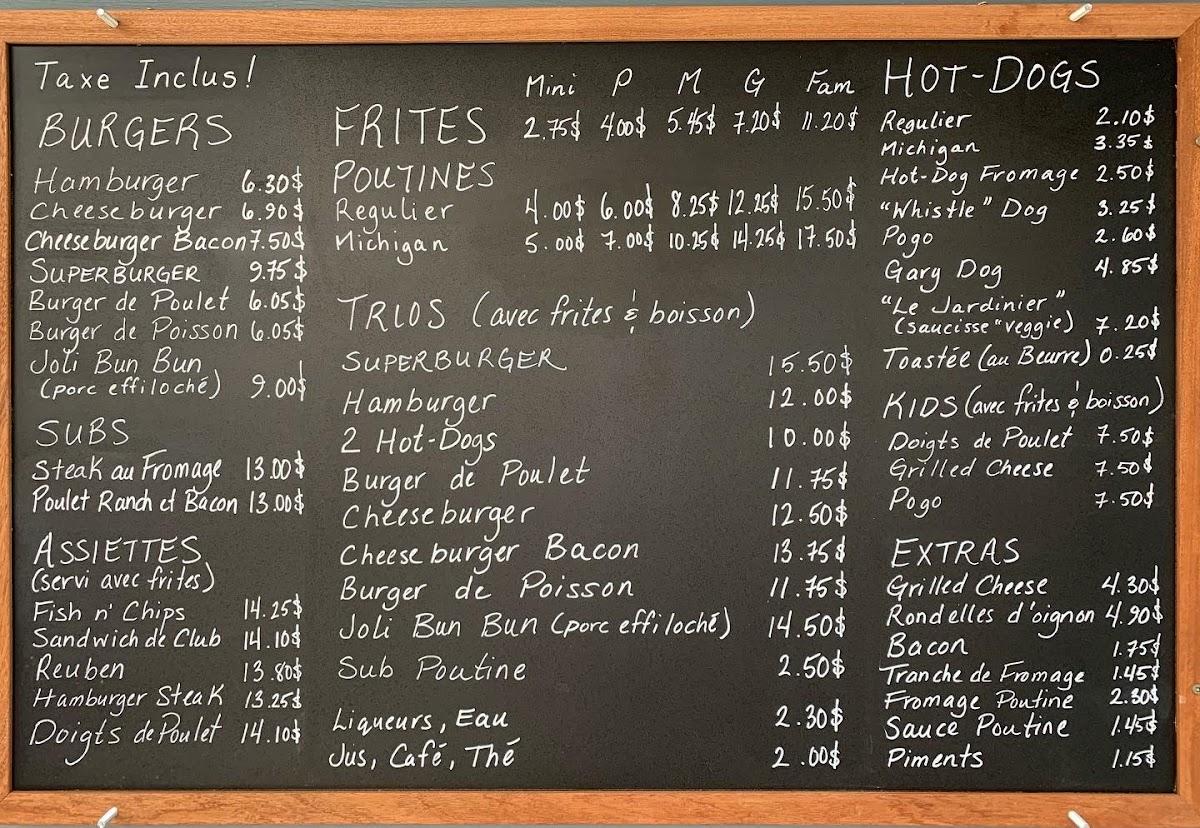 Taxe Inclus!
BURGERS
Hamburger 6.30$
Cheeseburger 6.90$
Cheeseburger Bacon 7.50$
SUPERBURGER 9.75$
Burger de Poulet 6.05$
Burger de Poisson 6.05$
Joli Bun Bun
(porc effiloché) 9.00$
SUBS
Steak au Fromage 13.00$
Poulet Ranch et Bacon 13.00$
ASSIETTES
(servi avec frites)
Fish n' Chips 14.25$
Sandwich de Club 14.10$
Reuben 13.80$
Hamburger Steak 13.25$
Doigts de Poulet 14.10$
Mini P M G Fam
FRITES 2.75$ 4.00$ 5.45$ 7.20$ 11.20$
POUTINES
Regulier 4.00$ 6.00$ 8.25$ 12.25$ 15.50$
Michigan 5.00$ 7.00$ 10.25$ 14.25$ 17.50$
TRIOS (avec frites & boisson)
SUPERBURGER 15.50$
Hamburger 12.00$
2 Hot-Dogs 10.00$
Burger de Poulet 11.75$
Cheeseburger 12.50$
Cheeseburger Bacon 13.75$
Burger de Poisson 11.75$
Joli Bun Bun (porc effiloché) 14.50$
Sub Poutine 2.50$
Liqueurs, Eau 2.30$
Jus, Café, Thé 2.00$
HOT-DOGS
Regulier 2.10$
Michigan 3.35$
Hot-Dog Fromage 2.50$
"Whistle" Dog 3.25$
Pogo 2.60$
Gary Dog 4.85$
"Le Jardinier"
(saucisse "veggie) 7.20$
Toastée (au Beurre) 0.25$
KIDS (avec frites & boisson)
Doigts de Poulet 7.50$
Grilled Cheese 7.50$
Pogo 7.50$
EXTRAS
Grilled Cheese 4.30$
Rondelles d'oignon 4.90$
Bacon 1.75$
Tranche de Fromage 1.45$
Fromage Poutine 2.30$
Sauce Poutine 1.45$
Piments 1.15$